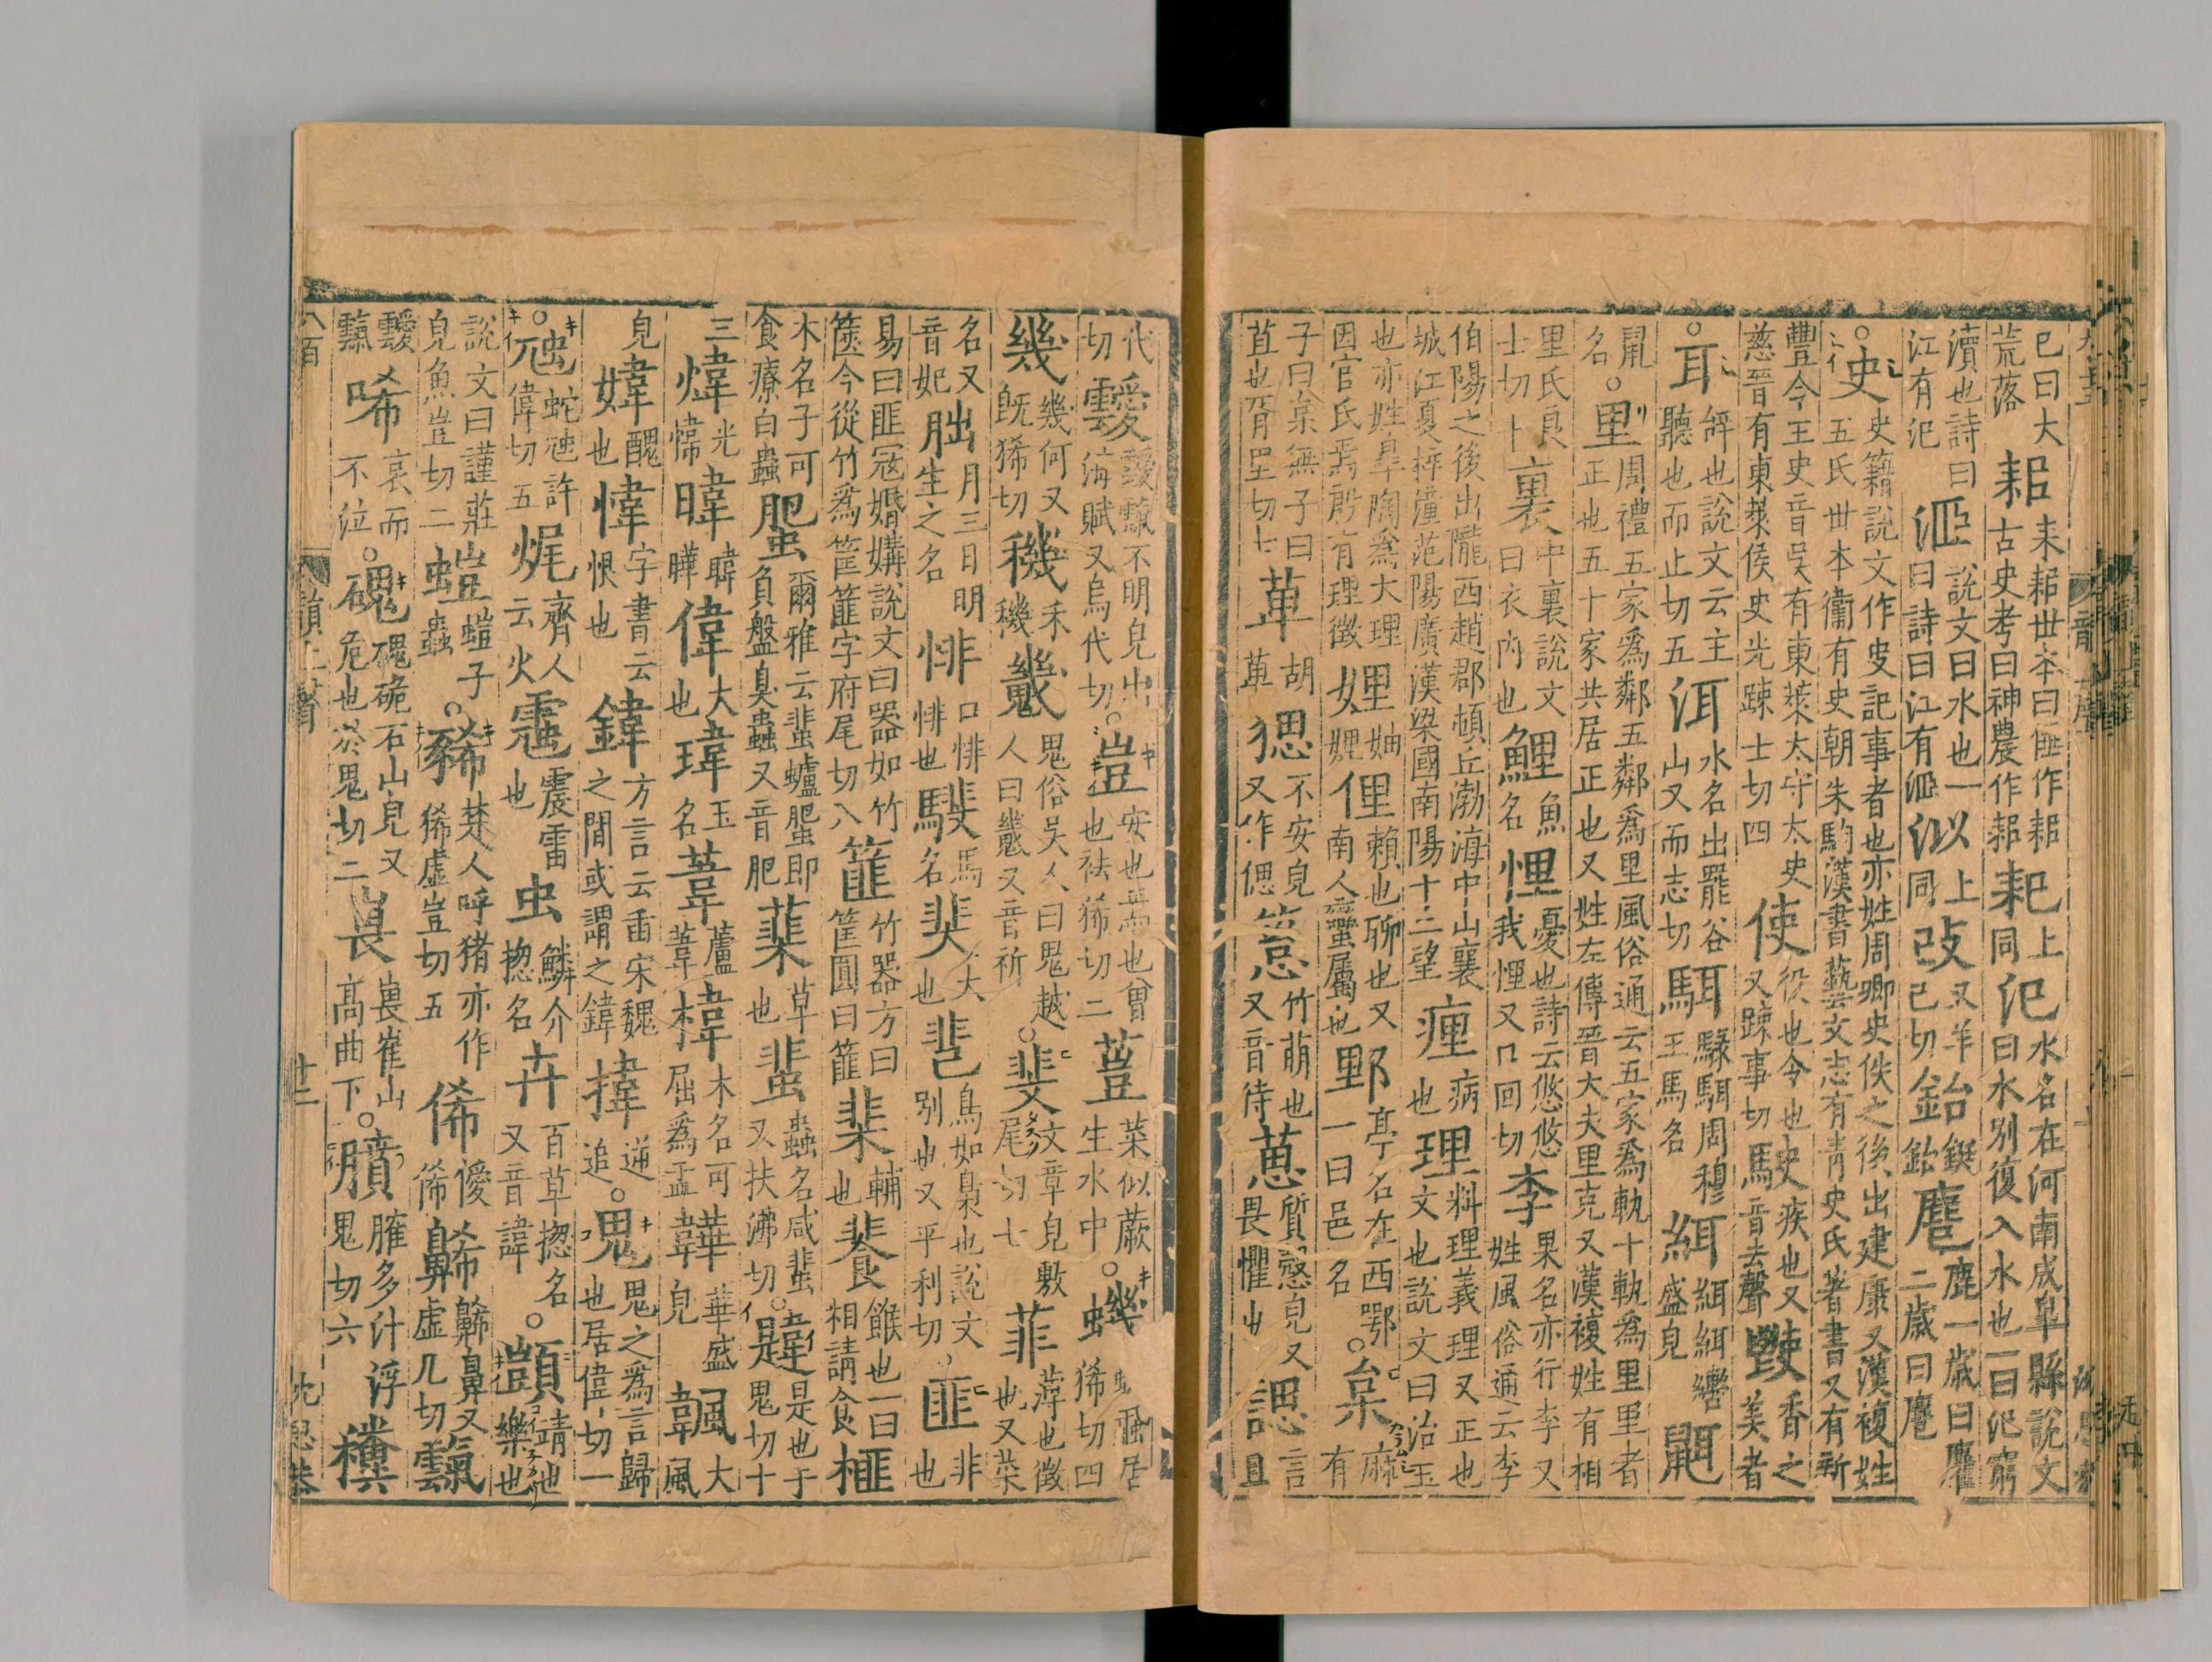 巳曰大荒落 耜 耒耜世本曰倕作耜古史考曰神農作耜 耙 上同 汜 水名在河南成皐縣說文曰水別復入水也一曰汜窮
瀆也詩曰江有汜 洍 說文曰水也一曰詩曰江有洍 㳶 上同 攺 又羊己切 鈶 鋌鈶 𪊍 鹿一歲曰𪋯二歲曰𪊍
○史 史籍說文作㕜記事者也亦姓周卿史佚之後出建康又漢複姓五氏世本衞有史朝朱駒漢書藝文志有青史氏著書又有新
豐令王史音吴有東萊太守太史慈晉有東萊侯史光踈士切四 使 役也令也又踈事切 駛 疾也又音去聲 𩡺 香之美者
○耳 辝也說文云主聽也而止切五 洱 水名出罷谷山又而志切 駬 騄駬周穆王馬名 緷 緷緷轡盛皃 䎶
鼠名 ○里 周禮五家爲鄰五鄰爲里風俗通云五家爲軌十軌爲里里者正也五十家共居正也又姓左傳晉大夫里克又漢複姓有相
里氏良士切十 裏 中裏說文曰衣内也 鯉 魚名 悝 憂也詩云悠悠我悝又口回切 李 果名亦行李又姓風俗通云李
伯陽之後出隴西趙郡頓丘渤海中山襄城江夏梓潼范陽廣漢梁國南陽十二望 㾖 病也 理 料理義理又正也文也說文曰治玉
也亦姓皐陶爲大理因官氏焉殷有理徵 娌 妯娌 俚 賴也聊也又南人蠻屬也 野 亭名在西鄂一曰邑名 ○枲 麻有
子曰枲無子曰苴也胥里切七 葸 胡葸 㺨 不安皃又作偲 䈚 竹萌也又音待 葸 質慤皃又畏懼也 諰 言且
代切 靉 靉靆不明皃出海賦又烏代切 ○豈 安也焉也曾也袪狶切二 䔇 菜似蕨生水中 ○蟣 蟣蝨居狶切四
幾 幾何又旣狶切 穖 禾穖 䰎 鬼俗吴人曰鬼越人曰䰎又音祈 ○斐 文章皃敷尾切七 菲 薄也徵也又菜
名又音妃 朏 月三日明生之名 悱 口悱悱也 騑 馬名 奜 大也 𩇫 鳥如梟也說文別也又平利切 ○匪 非也
易曰匪寇婚媾說文曰器如竹篋今從竹爲筐篚字府尾切八 篚 竹器方曰筐圓曰篚 棐 輔也 餥 餱也一曰相請食 榧
木名子可食療白蟲 蜰 爾雅云蜚蠦蜰即負盤臭蟲又音肥 菲 草也 蜚 蟲名咸蜚又扶沸切 ○韙 是也于鬼切十
三 煒 光煒 暐 暐曄 偉 大也 瑋 玉名 葦 蘆葦 椲 木名可屈爲盂 韡 華盛皃 䬐 大風
皃 媁 醜也 愇 字書云恨也 鍏 方言云臿宋魏之閒或謂之鍏 㨒 逆追 ○鬼 鬼之爲言歸也居偉切一
○虺 蛇虺許偉切五 烠 齊人云火 䨟 震雷也 虫 鱗介揔名 卉 百草揔名又音諱 ○顗 靖也樂也
說文曰謹莊皃魚豈切二 螘 螘子蟲 ○豨 楚人呼猪亦作狶虛豈切五 俙 僾俙 𪖥 𪖥鼻又虛几切 霼
靉霼 唏 哀而不泣 ○磈 磈硊石山皃又危也於鬼切二 嵔 嵔崔山高曲下 ○膹 臛多汁浮鬼切六 穳